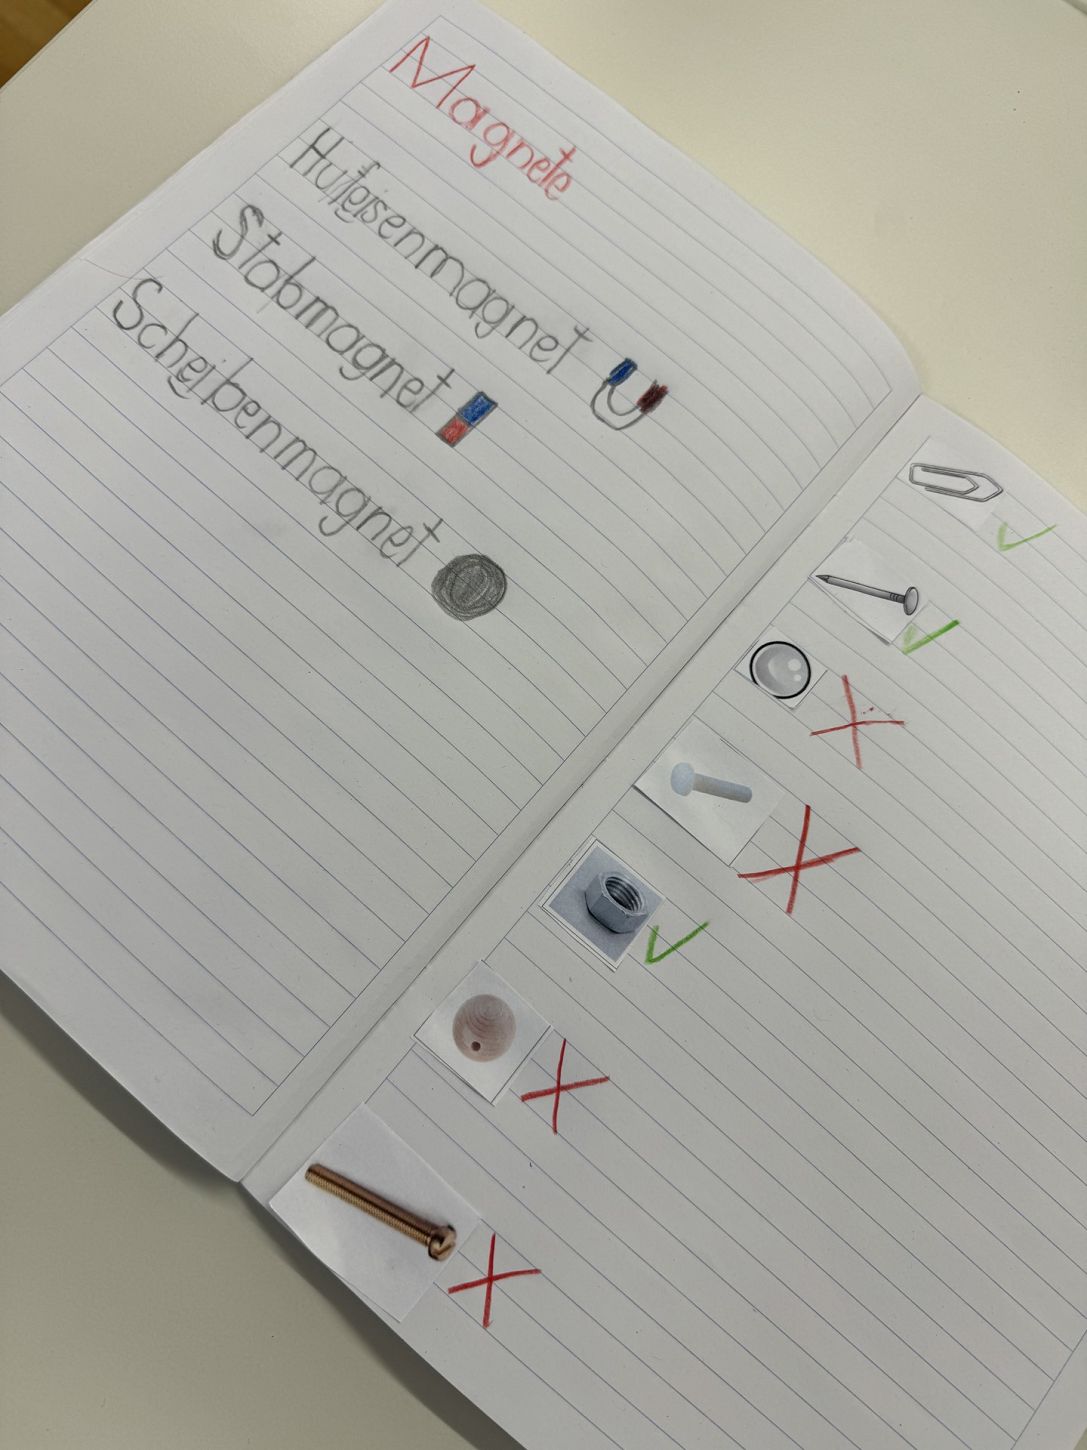 Magnete
Hufeisenmagnet
Stabmagnet
Scheibenmagnet